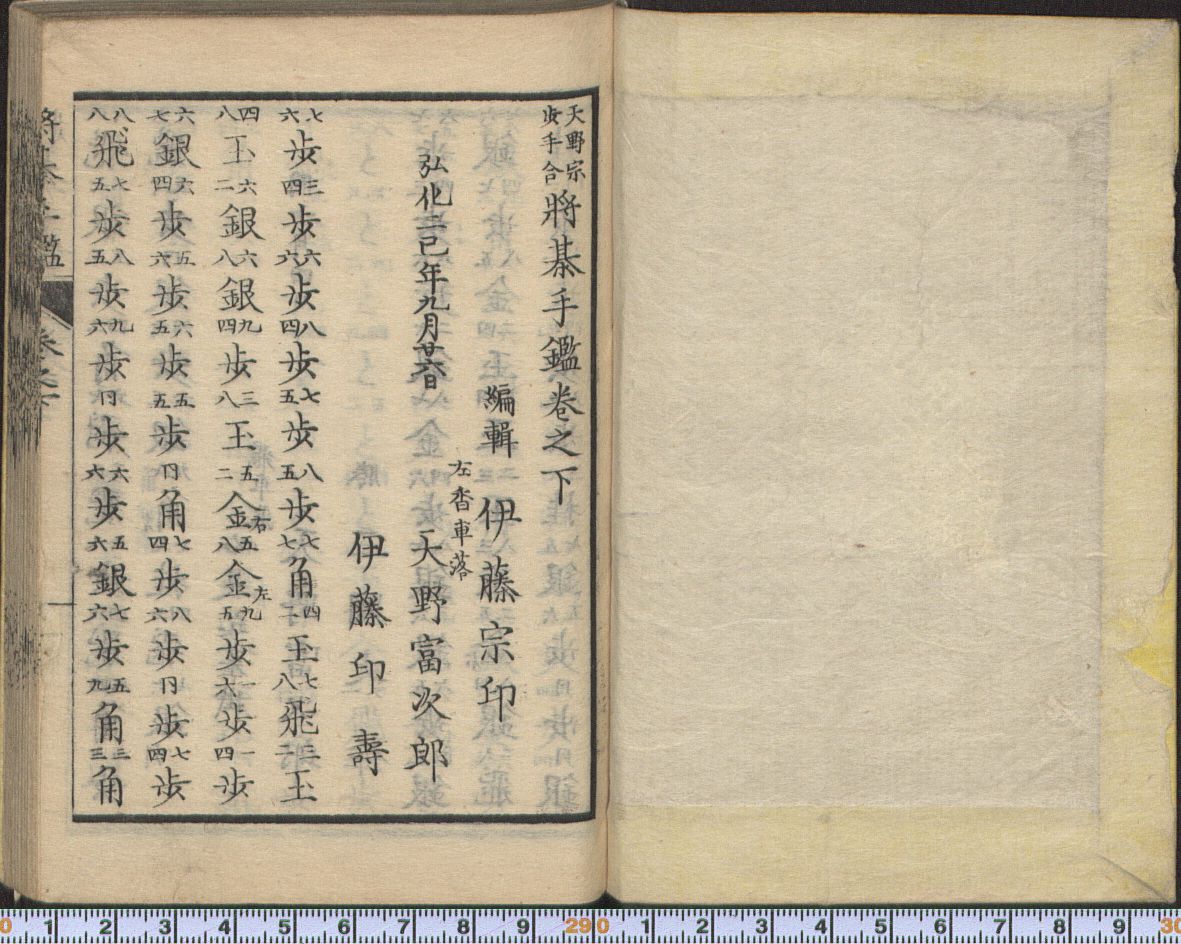 天野宗
歩手合
將棊手鑑卷之下
編輯 伊藤宗印
左香車落
弘化二巳年九月廿六日 天野富次郎
伊藤印壽
七六歩三四歩六六歩八四歩七五歩八五歩七七角四二玉七八飛三二玉
四八玉六二銀六八銀九四歩三八玉五二金右五八金左九五歩一六歩一四歩
六七銀六四歩五六歩六五歩五五歩同角七四歩八六歩同歩七四歩
八八飛七五歩八五歩九六歩同歩六六歩五六銀七六歩五九角三三角
將棊手鑑 卷之下
0 1 2 3 4 5 6 7 8 9 29 0 1 2 3 4 5 6 7 8 9 30